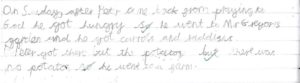 On Sunday after Peter came back from praying to
God he got hungry so he went to Mr Gregors
garden and he got carrots and
Peter got there but the potatoe but there was
no potatoe so he went to a farm.